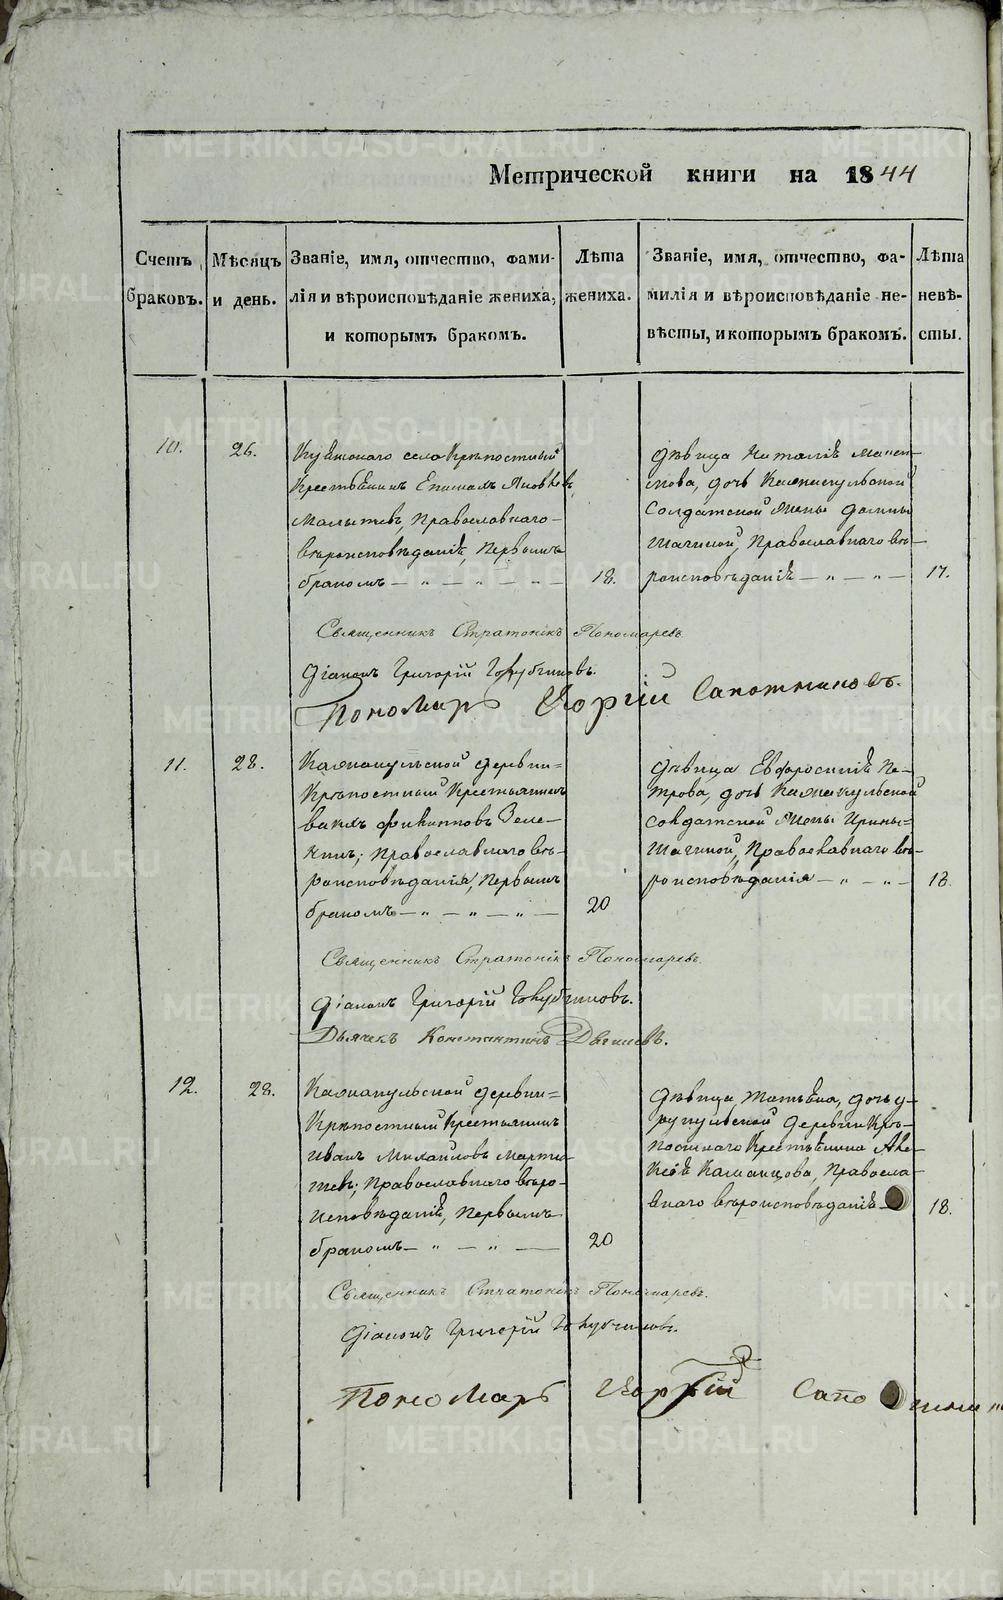 Метрической книги на 1844
Счетъ браковъ.
Мѣсяцъ и день.
Званіе, имя, отчество, фами-
лія и вѣроисповѣданіе жениха,
и которымъ бракомъ.
Лѣта
жениха.
Званіе, имя, отчество, фа-
милія и вѣроисповѣданіе не-
вѣсты, и которымъ бракомъ.
Лѣта
невѣ-
сты.
10.
26.
села Крѣпостный
Крестьянинъ
Малышевъ, Православнаго
вѣроисповѣданія, Первымъ
бракомъ — „ — „ — „ —
18.
Дѣвица Наталія Макси-
мова, дочь
Солдатской жены
Шагиной, Православнаго вѣ-
роисповѣданія — „ — „ —
17.
Священникъ Стратоникъ Пономаревъ
Діаконъ Григорій Голубчиковъ.
Пономарь Георгій Сапожниковъ.
11.
28.
деревни
Крѣпостный Крестьянинъ
Зеле-
нинъ; Православнаго вѣ-
роисповѣданія, Первымъ
бракомъ — „ — „ — „ —
20
Дѣвица Евфросинія Пе-
трова, дочь
солдатской жены Ирины
Шагиной, Православнаго вѣ-
роисповѣданія — „ — „ —
18.
Священникъ Стратоникъ Пономаревъ.
Діаконъ Григорій Голубчиковъ.
Дьячекъ Константинъ
12.
28.
деревни
Крѣпостный Крестьянинъ
Иванъ Михайловъ Марты-
шевъ; Православнаго вѣро-
исповѣданія, Первымъ
бракомъ — „ — „ —
20
Дѣвица Татьяна, дочь
деревни Крѣ-
постнаго Крестьянина Але-
ксѣя Православ-
наго вѣроисповѣданія
18.
Священникъ Стратоникъ Пономаревъ.
Діаконъ Григорій Голубчиковъ.
Пономарь Георгій
METRIKI.GASO-URAL.RU